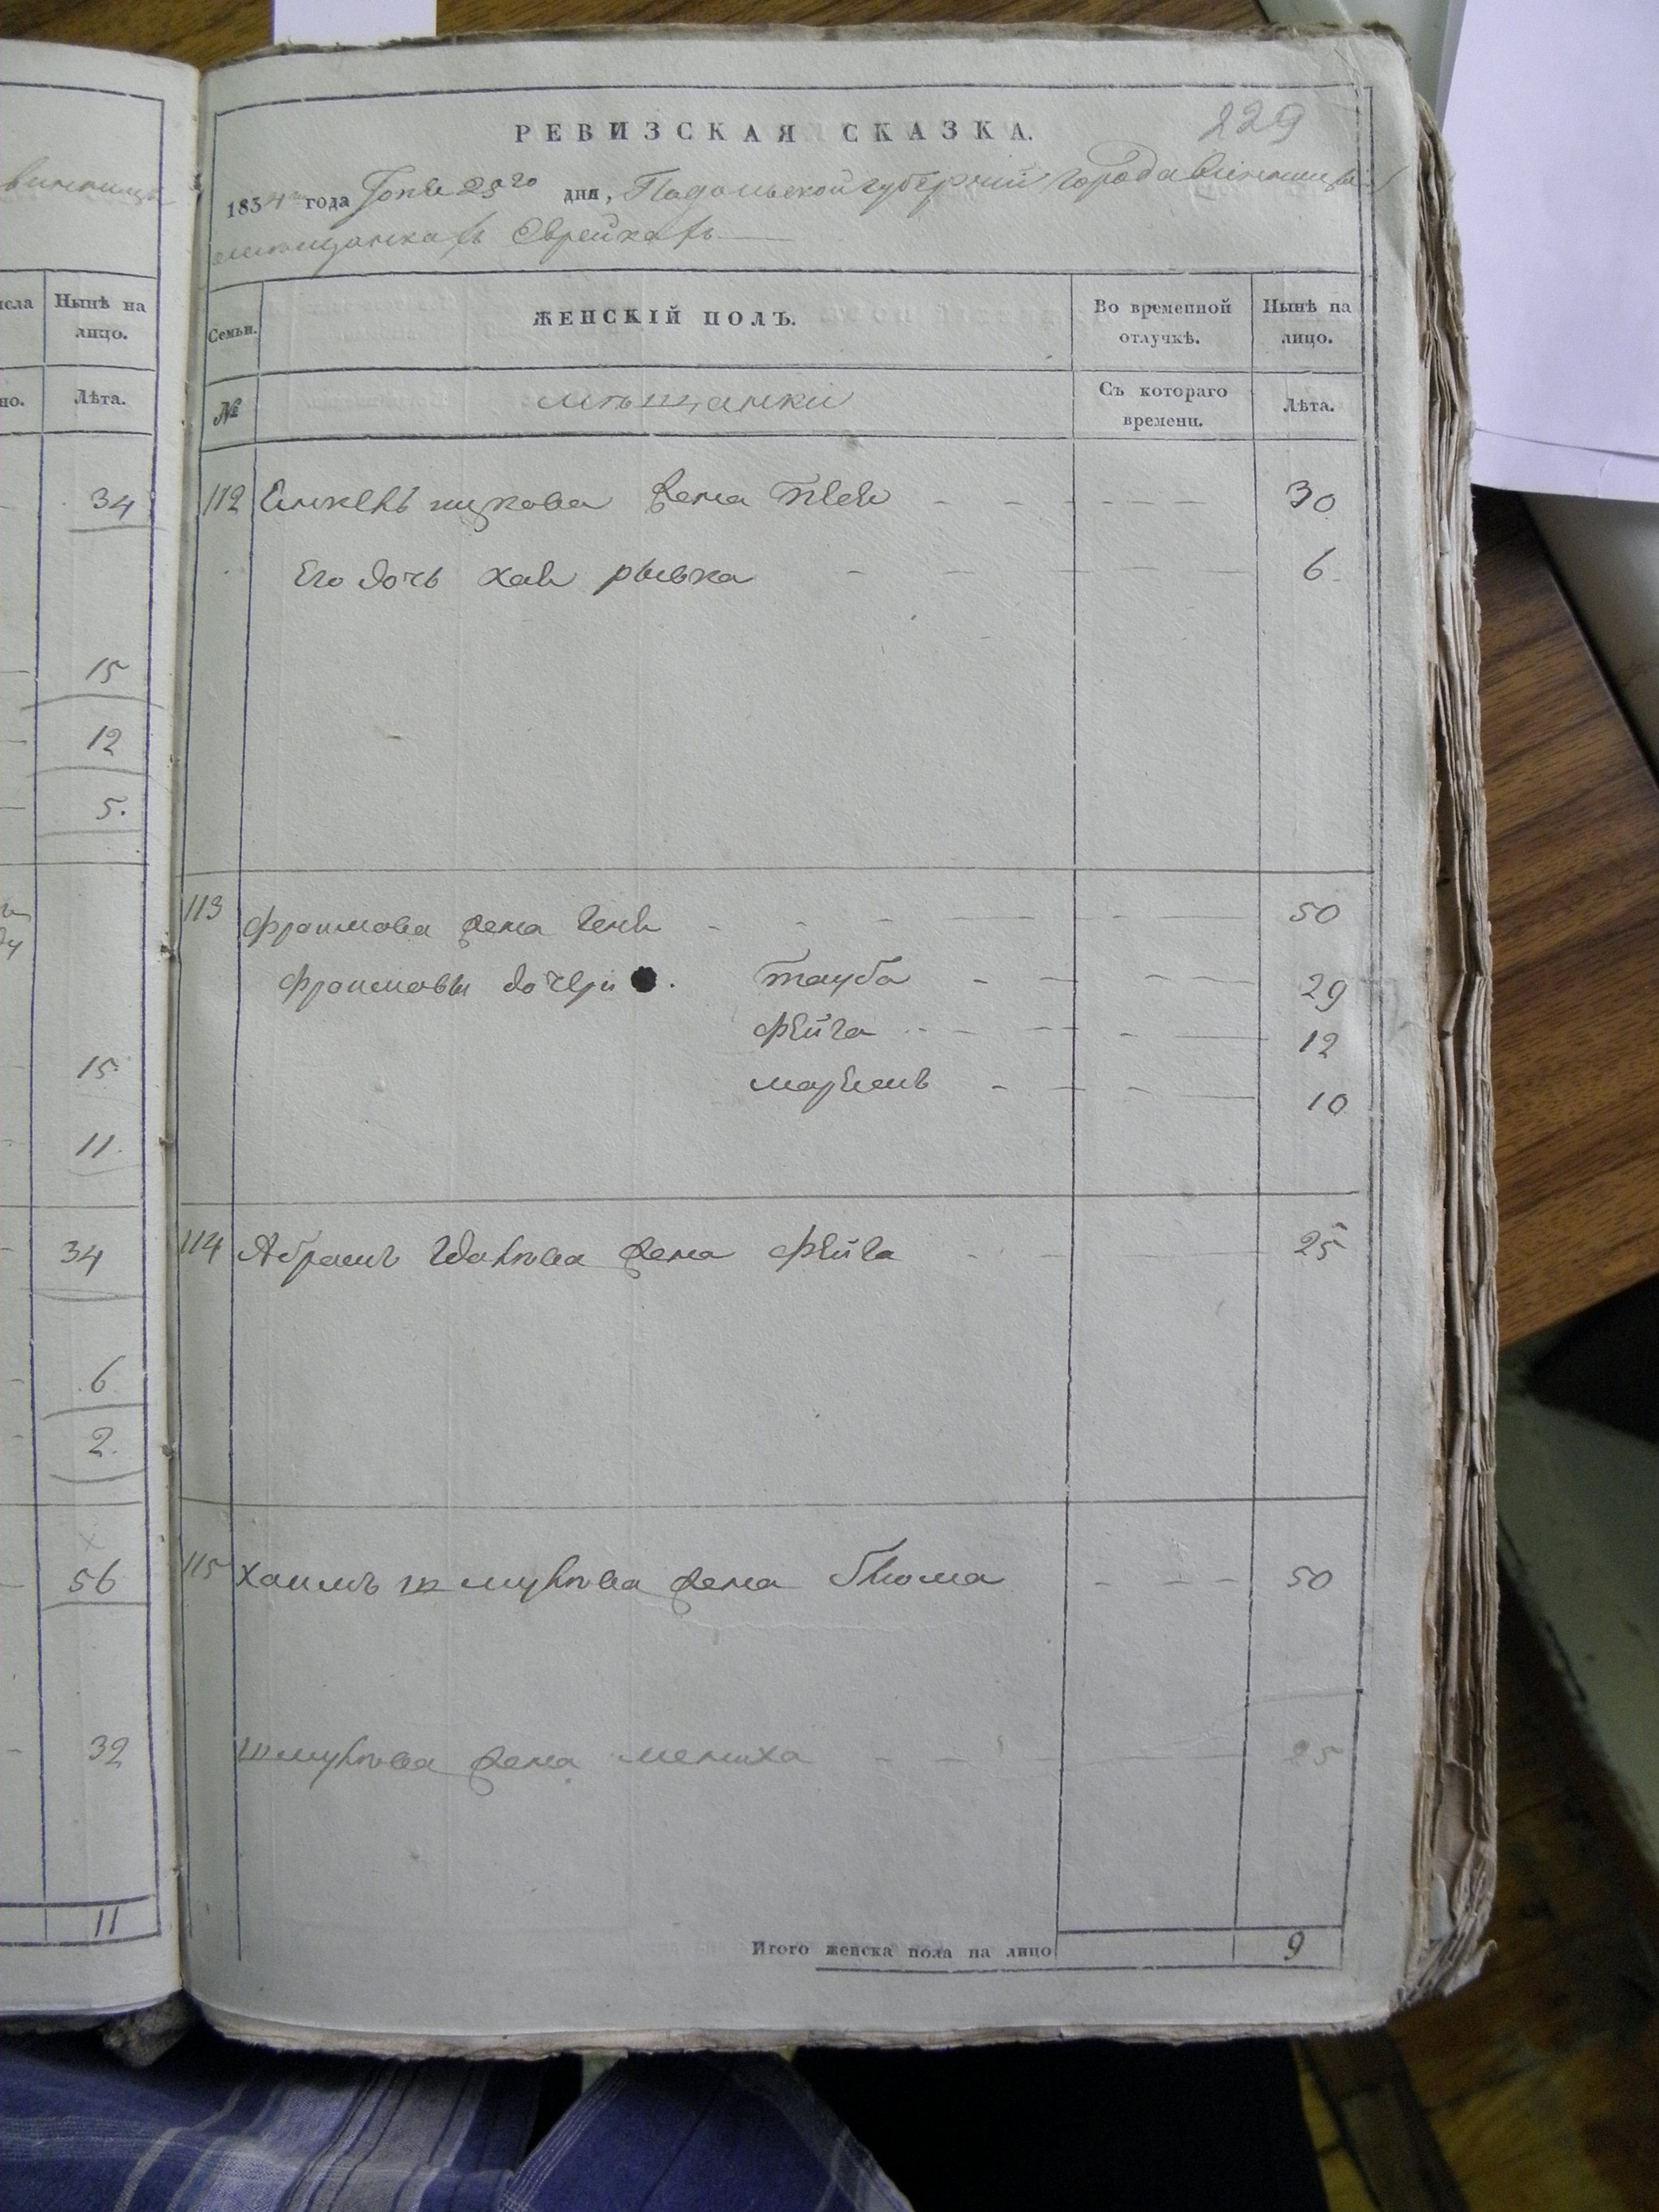 229
РЕВИЗСКАЯ СКАЗКА.
1834 года Гюня 25го дня, Подольской губернии города Винницы
мещанкахъ Еврейкахъ
Семьи. ЖЕНСКІЙ ПОЛЪ. Во временной отлучкѣ. Нынѣ на лицо.
№ мѣщанки Съ котораго времени. Лѣта.
112 жена 30
Его дочь хая рывка 6
113 Фроимова жена 50
Фроимовы дочери Тауба 29
Фейга 12
марьемъ 10
114 Абрамъ жена Фейга 25
115 Хаимъ шмулюва жена блюма 50
шмулюва жена мениха 25
Итого женска пола на лицо 9
Нынѣ на лицо.
Лѣта.
34
15
12
5.
15
11.
34
6
2.
56
32
11